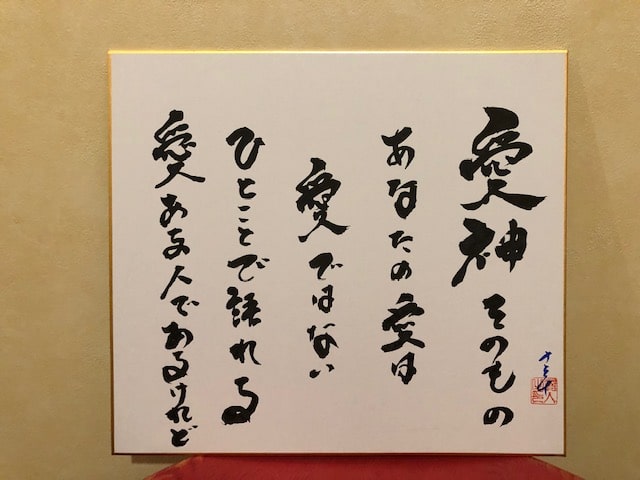 愛神そのもの
あなたの愛は
愛ではない
ひとことで語れる
愛ある人であるけれど